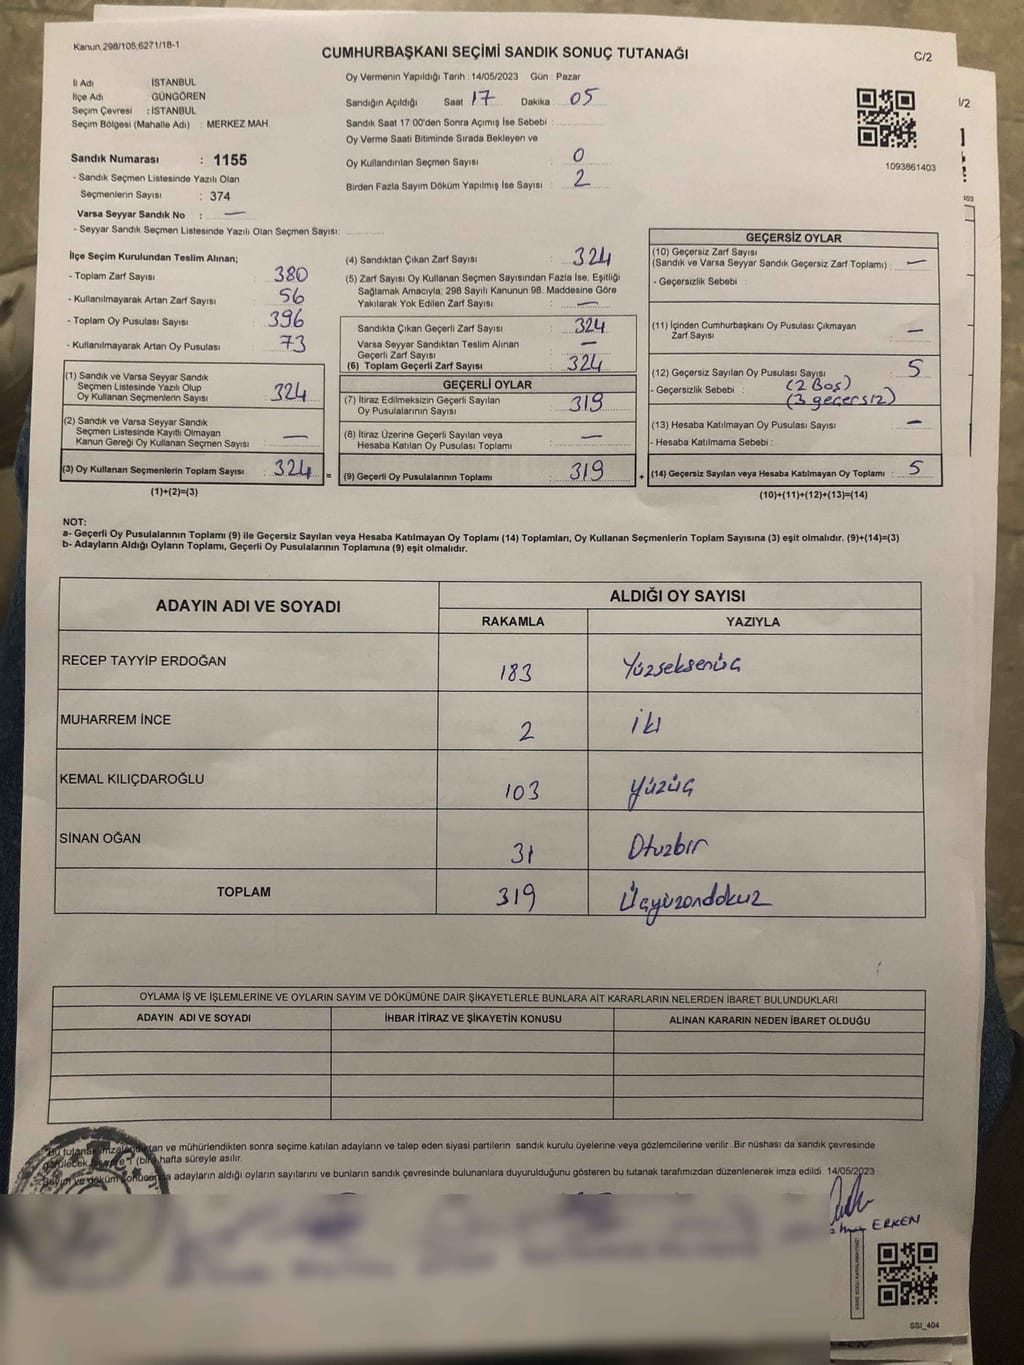 Kanun,298/105,6271/18-1
CUMHURBAŞKANI SEÇİMİ SANDIK SONUÇ TUTANAĞI
C/2
İl Adı : İSTANBUL
İlçe Adı : GÜNGÖREN
Seçim Çevresi : İSTANBUL
Seçim Bölgesi (Mahalle Adı) : MERKEZ MAH.
Sandık Numarası : 1155
- Sandık Seçmen Listesinde Yazılı Olan
Seçmenlerin Sayısı : 374
Varsa Seyyar Sandık No : —
- Seyyar Sandık Seçmen Listesinde Yazılı Olan Seçmen Sayısı:
Oy Vermenin Yapıldığı Tarih : 14/05/2023 Gün : Pazar
Sandığın Açıldığı Saat 17 Dakika 05
Sandık Saat 17:00'den Sonra Açımış İse Sebebi :
Oy Verme Saati Bitiminde Sırada Bekleyen ve
Oy Kullandırılan Seçmen Sayısı : 0
Birden Fazla Sayım Döküm Yapılmış İse Sayısı : 2
1093861403
1/2
İlçe Seçim Kurulundan Teslim Alınan;
- Toplam Zarf Sayısı : 380
- Kullanılmayarak Artan Zarf Sayısı : 56
- Toplam Oy Pusulası Sayısı : 396
- Kullanılmayarak Artan Oy Pusulası : 73
(1) Sandık ve Varsa Seyyar Sandık
Seçmen Listesinde Yazılı Olup
Oy Kullanan Seçmenlerin Sayısı : 324
(2) Sandık ve Varsa Seyyar Sandık
Seçmen Listesinde Kayıtlı Olmayan
Kanun Gereği Oy Kullanan Seçmen Sayısı : —
(3) Oy Kullanan Seçmenlerin Toplam Sayısı : 324 =
(1)+(2)=(3)
(4) Sandıktan Çıkan Zarf Sayısı : 324
(5) Zarf Sayısı Oy Kullanan Seçmen Sayısından Fazla İse, Eşitliği
Sağlamak Amacıyla, 298 Sayılı Kanunun 98. Maddesine Göre
Yakılarak Yok Edilen Zarf Sayısı : —
Sandıkta Çıkan Geçerli Zarf Sayısı : 324
Varsa Seyyar Sandıktan Teslim Alınan
Geçerli Zarf Sayısı : —
(6) Toplam Geçerli Zarf Sayısı : 324
GEÇERLİ OYLAR
(7) İtiraz Edilmeksizin Geçerli Sayılan
Oy Pusulalarının Sayısı : 319
(8) İtiraz Üzerine Geçerli Sayılan veya
Hesaba Katılan Oy Pusulası Toplamı : —
(9) Geçerli Oy Pusulalarının Toplamı : 319 +
GEÇERSİZ OYLAR
(10) Geçersiz Zarf Sayısı
(Sandık ve Varsa Seyyar Sandık Geçersiz Zarf Toplamı) : —
- Geçersizlik Sebebi :
(11) İçinden Cumhurbaşkanı Oy Pusulası Çıkmayan
Zarf Sayısı : —
(12) Geçersiz Sayılan Oy Pusulası Sayısı : 5
- Geçersizlik Sebebi : (2 Boş)
(3 geçersiz)
(13) Hesaba Katılmayan Oy Pusulası Sayısı : —
- Hesaba Katılmama Sebebi :
(14) Geçersiz Sayılan veya Hesaba Katılmayan Oy Toplamı : 5
(10)+(11)+(12)+(13)=(14)
NOT:
a- Geçerli Oy Pusulalarının Toplamı (9) ile Geçersiz Sayılan veya Hesaba Katılmayan Oy Toplamı (14) Toplamları, Oy Kullanan Seçmenlerin Toplam Sayısına (3) eşit olmalıdır. (9)+(14)=(3)
b- Adayların Aldığı Oyların Toplamı, Geçerli Oy Pusulalarının Toplamına (9) eşit olmalıdır.
ADAYIN ADI VE SOYADI
ALDIĞI OY SAYISI
RAKAMLA YAZIYLA
RECEP TAYYİP ERDOĞAN 183 Yüzseksenüç
MUHARREM İNCE 2 iki
KEMAL KILIÇDAROĞLU 103 Yüzüç
SİNAN OĞAN 31 Otuzbir
TOPLAM 319 Üçyüzondokuz
OYLAMA İŞ VE İŞLEMLERİNE VE OYLARIN SAYIM VE DÖKÜMÜNE DAİR ŞİKAYETLERLE BUNLARA AİT KARARLARIN NELERDEN İBARET BULUNDUKLARI
ADAYIN ADI VE SOYADI İHBAR İTİRAZ VE ŞİKAYETİN KONUSU ALINAN KARARIN NEDEN İBARET OLDUĞU
"Bu tutanak imzalandıktan ve mühürlendikten sonra seçime katılan adayların ve talep eden siyasi partilerin sandık kurulu üyelerine veya gözlemcilerine verilir. Bir nüshası da sandık çevresinde
görülecek bir yere 1 (bir) hafta süreyle asılır.
Sayım ve döküm sonucunda adayların aldığı oyların sayılarını ve bunların sandık çevresinde bulunanlara duyurulduğunu gösteren bu tutanak tarafımızdan düzenlenerek imza edildi. 14/05/2023
ERKEN
SSI_404